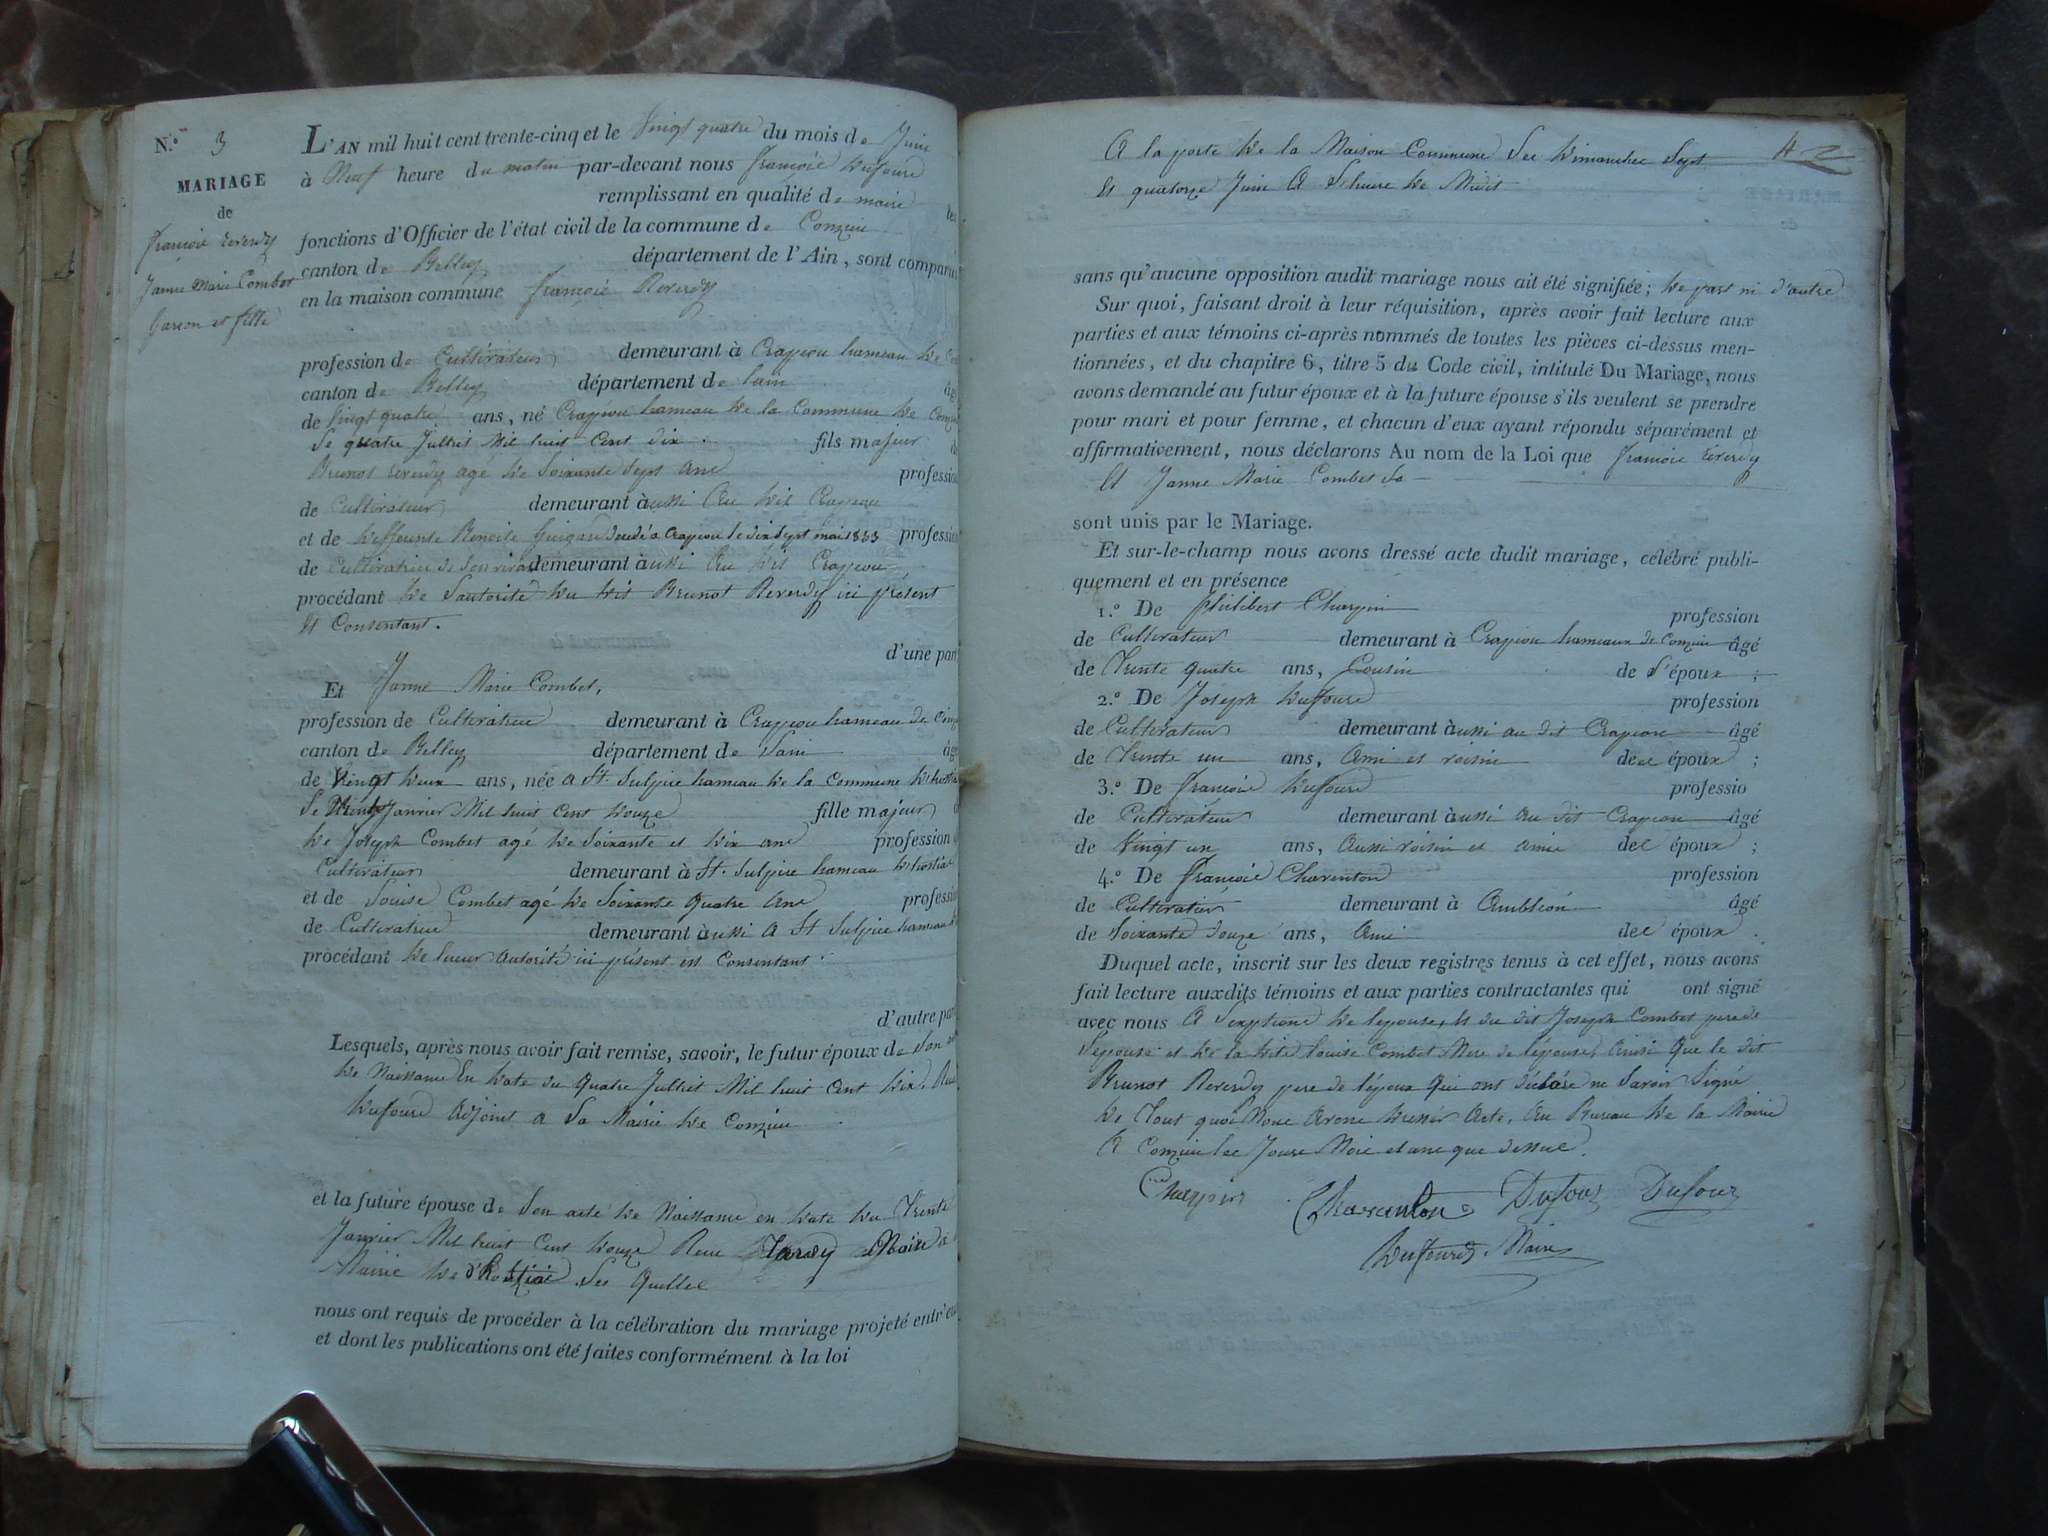 N.o 3
MARIAGE
de
françoie Reverdy
Janne Marie Combet
Garçon et fille
L'AN mil huit cent trente-cinq et le Vingt quatre du mois de Juin
à Neuf heure du matin par-devant nous françoie Dufourd
remplissant en qualité de maire les
fonctions d'Officier de l'état civil de la commune de Conzieu
canton de Belley département de l'Ain, sont comparus
en la maison commune françoie Reverdy
profession de Cultivateur demeurant à Crapeou hameau de
canton de Belley département de lain
de Vingt quatre ans, né Crapeou hameau de la Commune de
le quatre Julliet Mil huit Cent dix. fils majeur
Brunot Reverdy agé de Soixante Sept ane profession
de Cultivateur demeurant àussi Au dit Crapeou
et de deffeunte Benoite décédé a Crapeou le dix Sept mai 1833 profession
de Cultivatrice de Son vivan demeurant àussi Au dit Crapeou
procédant de Lautorité du dit Brunot Reverdy ici présent
Et Consentant.
d'une part
Et Janne Marie Combet,
profession de Cultivatrice demeurant à Crapeou hameau de
canton de Belley département de Lain
de Vingt deux ans, née a St Sulpice hameau de la Commune
le Trente Janvier Mil huit Cent douze fille majeur
de Joseph Combet agé de Soixante et dix ane profession
Cultivateur demeurant à St. Sulpice hameau
et de Louise Combet agé de Soixante Quatre Ane profession
de Cultivatrice demeurant àussi A St Sulpice hameau
procédant de Lueur autorité ici présent et Consentant.
d'autre part
Lesquels, après nous avoir fait remise, savoir, le futur époux de Son
de Naissance En date du Quatre Julliet Mil huit Cent dix,
Dufourd Adjoint a La Mairie de Conzieu
et la future épouse de Son acte de Naissance en date du Trente
Janvier Mil huit Cent douze Reçu Maire a
Mairie de Les Quelles
nous ont requis de procéder à la célébration du mariage projeté entr'eux
et dont les publications ont été faites conformément à la loi
A la porte de la Maison Commune Les dimanches Sept
Et quatorze Juin A de Midit
sans qu'aucune opposition audit mariage nous ait été signifiée; de part ni d'autre
Sur quoi, faisant droit à leur réquisition, après avoir fait lecture aux
parties et aux témoins ci-après nommés de toutes les pièces ci-dessus men-
tionnées, et du chapitre 6, titre 5 du Code civil, intitulé Du Mariage, nous
avons demandé au futur époux et à la future épouse s'ils veulent se prendre
pour mari et pour femme, et chacun d'eux ayant répondu séparément et
affirmativement, nous déclarons Au nom de la Loi que françoie Reverdy
Et Janne Marie Combet
sont unis par le Mariage.
Et sur-le-champ nous avons dressé acte dudit mariage, célébré publi-
quement et en présence
1.o De Philibert Charpin profession
de Cultivateur demeurant à Crapeou hameaux de Conzieu âgé
de Trente quatre ans, Cousin de L'époux;
2.o De Joseph Duffourd profession
de Cultivateur demeurant àussi au dit Crapeou âgé
de Trente un ans, Ami et voisin de époux;
3.o De françoie Dufourd professio
de Cultivateur demeurant àussi au dit Crapeou âgé
de Vingt un ans, Aussi voisin et amie de époux;
4.o De françoie Charenton profession
de Cultivateur demeurant à Ambléon âgé
de Soixante douze ans, Ami de époux.
Duquel acte, inscrit sur les deux registres tenus à cet effet, nous avons
fait lecture auxdits témoins et aux parties contractantes qui ont signé
avec nous A de lepouse, et du dit Joseph Combet pere de
Lepouse et de la dite louise Combet Mere de lépouse, Ainsi Que le dit
Brunot Reverdy pere de lépoux Qui ont déclaré ne Savoir Signé
de Tout quoi Nous Avons dresser Acte, Au Bureau de la Mairie
A Conzieu les Jours Mois et ane que dessue.
Charpin Charanton Dufour Dufour
Dufourd, Maire